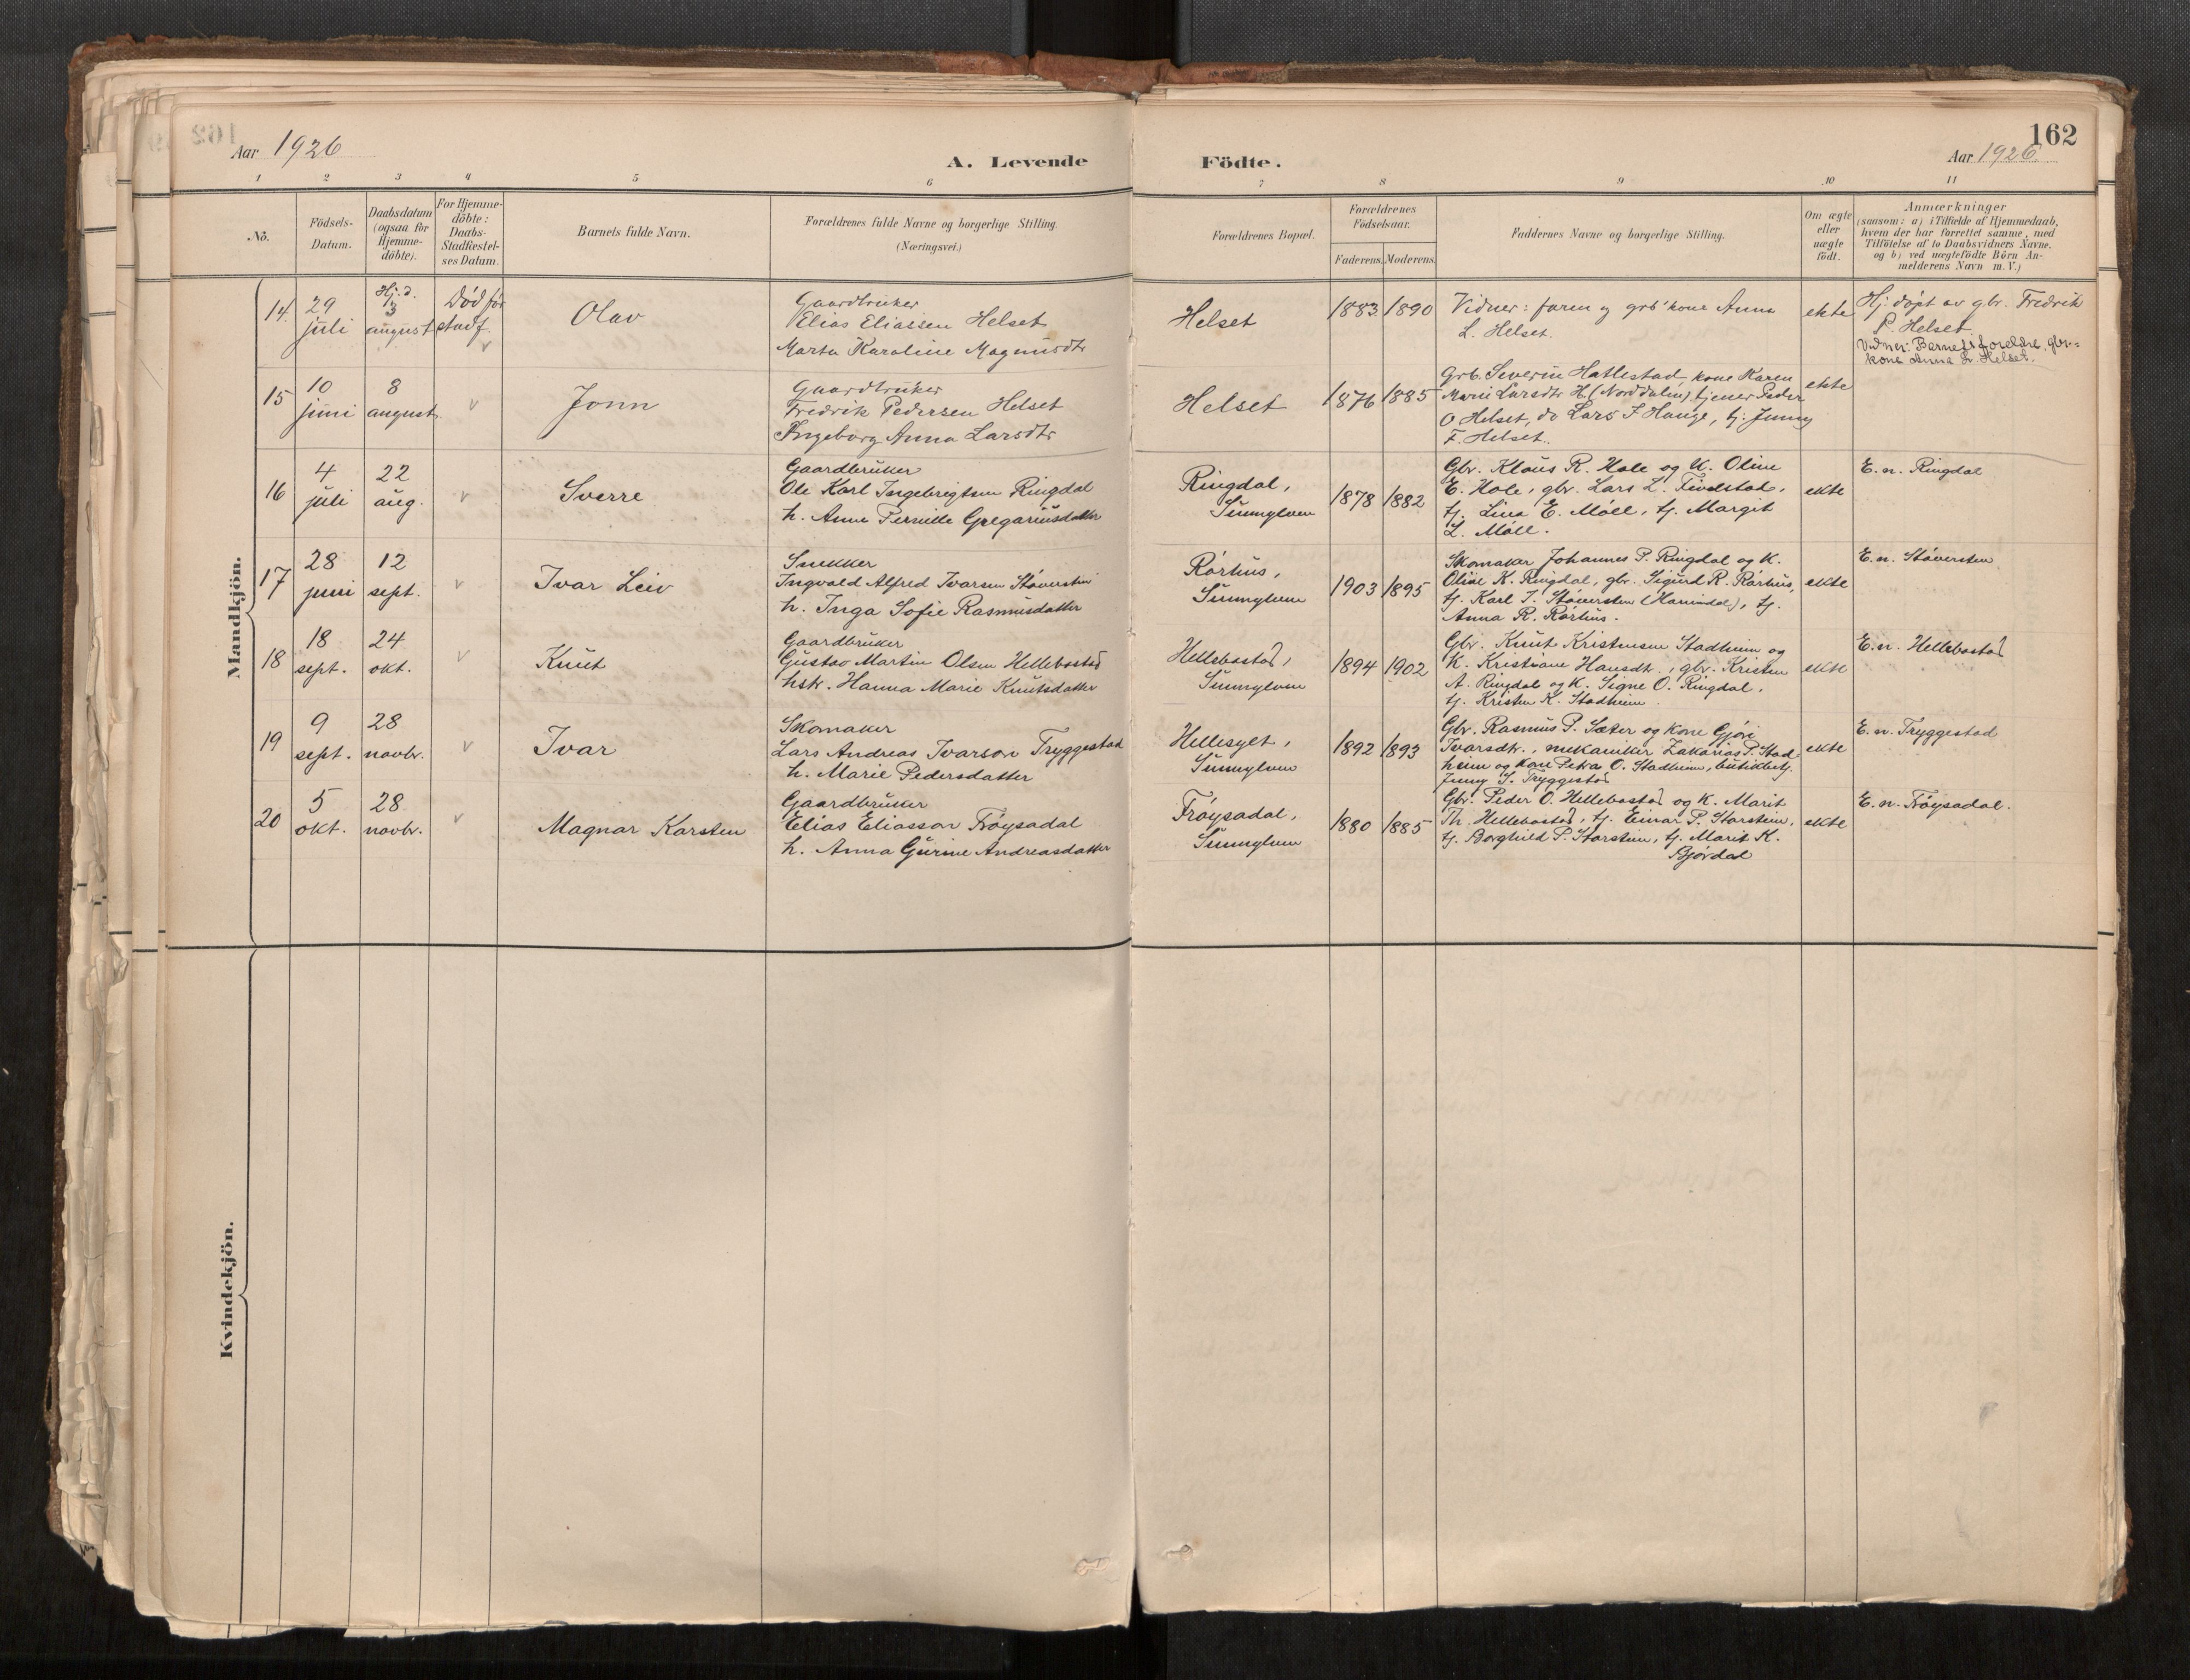 162
Aar 1926
A. Levende Födte.
Aar 1926
1 2 3 4 5 6 7 8 9 10 11
Nô.
Födsels-
Datum.
Daabsdatum
(ogsaa for
Hjemme-
döbte).
For Hjemme-
döbte:
Daabs-
Stadfestel-
ses Datum.
Barnets fulde Navn.
Forældrenes fulde Navne og borgerlige Stilling.
(Næringsvei.)
Forældrenes Bopæl.
Forældrenes
Födselsaar.
Faderens. Moderens.
Faddernes Navne og borgerlige Stilling.
Om ægte
eller
uægte
födt.
Anmærkninger
(saasom: a) i Tilfælde af Hjemmedaab,
hvem der har forrettet samme, med
Tilföielse af to Daabsvidners Navne,
og b) ved uægtefödte Börn An-
melderens Navn m. V.)
Mandkjön.
14.
29
juli
Hj. d.
3
august
Död för
stadf.
Olav
Gaardbruker
Elias Eliassen Helset
Marta Karoline Magnusdtr
Helset
1883 1890
Vidner: faren og grb' kone Anna
L. Helset.
ekte
Hj. döpt av gbr. Fredrik
P. Helset.
Vidner: Barnets foreldre, gbr=
kone Anna L. Helset.
15
10
juni
8
august
Jonn
Gaardbruker
Fredrik Pedersen Helset
Ingeborg Anna Larsdtr
Helset
1876 1885
Grb. Severin Hatlestad, kone Karen
Marie Larsdtr H. (Norddalen), tjener Peder
O Helset, do Lars F. Hauge, tj: Jenny
F. Helset.
ekte
16
4
juli
22
aug.
Sverre
Gaardbruker
Ole Karl Ingebrigtsen Ringdal
h. Anne Pernille Gregariusdatter
Ringdal,
Sunnylven
1878 1882
Gbr. Klaus R. Hole og K. Oline
E. Hole, gbr. Lars L. Tivdestad,
tj. Lina E. Möll, tj. Margit
L. Möll.
ekte
E. n. Ringdal
17
28
juni
12
sept.
Ivar Leiv
Snekker
Ingvald Alfred Ivarsen Stöversten
h. Inga Sofie Rasmusdatter
Rörhus,
Sunnylven
1903 1895
Skomaker Johannes P. Ringdal og K.
Oline K. Ringdal, gbr. Sigurd R. Rörhus,
tj. Karl I. Stöversten (Hornindal), tj.
Anna R. Rörhus.
ekte
E. n. Stöversten
18
18
sept.
24
okt.
Knut
Gaardbruker
Gustav Martin Olsen Hellebostad
hstr. Hanna Marie Knutsdatter
Hellebostad,
Sunnylven
1894 1902
Gbr. Knut Kristensen Stadheim og
K. Kristiane Hansdtr., gbr. Kristen
A. Ringdal og K. Signe O. Ringdal,
tj. Kristen K. Stadheim
ekte
E. n. Hellebostad
19
9
sept.
28
novbr.
Ivar
Skomaker
Lars Andreas Ivarson Tryggestad
h. Marie Pedersdatter
Hellesylt,
Sunnylven
1892 1893
Gbr. Rasmus P. Sæter og kone Gjöri
Ivarsdtr., mekaniker Zakarias P. Stad-
heim og kone Petra O. Stadheim, butikbetj.
Jenny S. Tryggestad
ekte
E. n. Tryggestad
20
5
okt.
28
novbr.
Magnar Karsten
Gaardbruker
Elias Eliasson Fröysadal
h. Anna Gurine Andreasdatter
Fröysadal,
Sunnylven
1880 1885
Gbr. Peder O. Hellebostad og K. Marit
Th. Hellebostad, tj. Einar P. Korsteim,
tj. Borghild P. Korsteim, tj. Marit K.
Björdal
ekte
E. n. Fröysadal.
Kvindekjön.